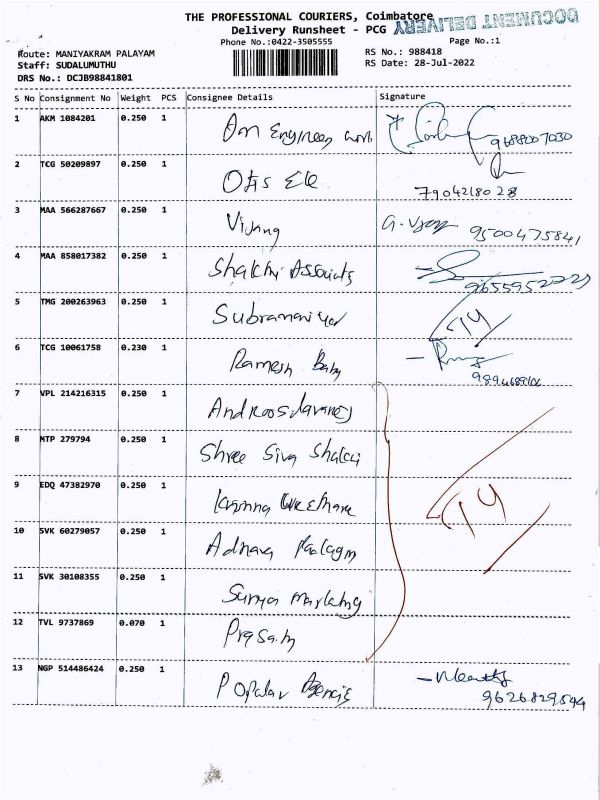 THE PROFESSIONAL COURIERS, Coimbatore
Delivery Runsheet - PCG
DOCUMENT DELIVERY
Phone No.:0422-3505555
Page No.:1
Route: MANIYAKRAM PALAYAM
RS No.: 988418
Staff: SUDALUMUTHU
RS Date: 28-Jul-2022
DRS No.: DCJB98841801
S No Consignment No Weight PCS Consignee Details Signature
1 AKM 1084201 0.250 1 Om Engineering work
9688007030
2 TCG 50209897 0.250 1 Otis Ele
7904218028
3 MAA 566287667 0.250 1 Vijay G. Vijay 9500475841
4 MAA 858017382 0.250 1 Shakthi Associats
5 TMG 200263963 0.250 1 Subramaniyan
6 TCG 10061758 0.230 1 Ramesh Baby
7 VPL 214216315 0.250 1
8 MTP 279794 0.250 1 Shree Siva Shakti
9 EDQ 47382970 0.250 1
10 SVK 60279057 0.250 1
11 SVK 30108355 0.250 1 Surya Marketing
12 TVL 9737869 0.070 1
13 NGP 514486424 0.250 1 Popular Agencis
9626829544